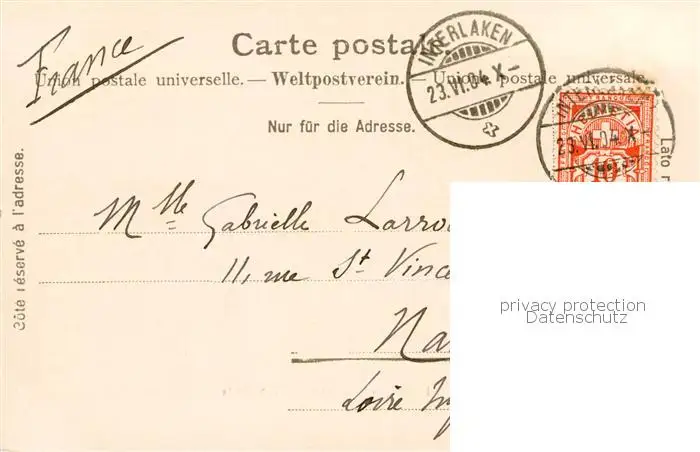 France
Carte postale.
Union postale universelle. — Weltpostverein. — Unione postale universale.
Nur für die Adresse.
INTERLAKEN
23.VI.04.X–
23.VI.04.X
10
Côté réservé à l'adresse.
Lato
Mlle Gabrielle
11, rue St Vince
Na
Loire
privacy protection
Datenschutz